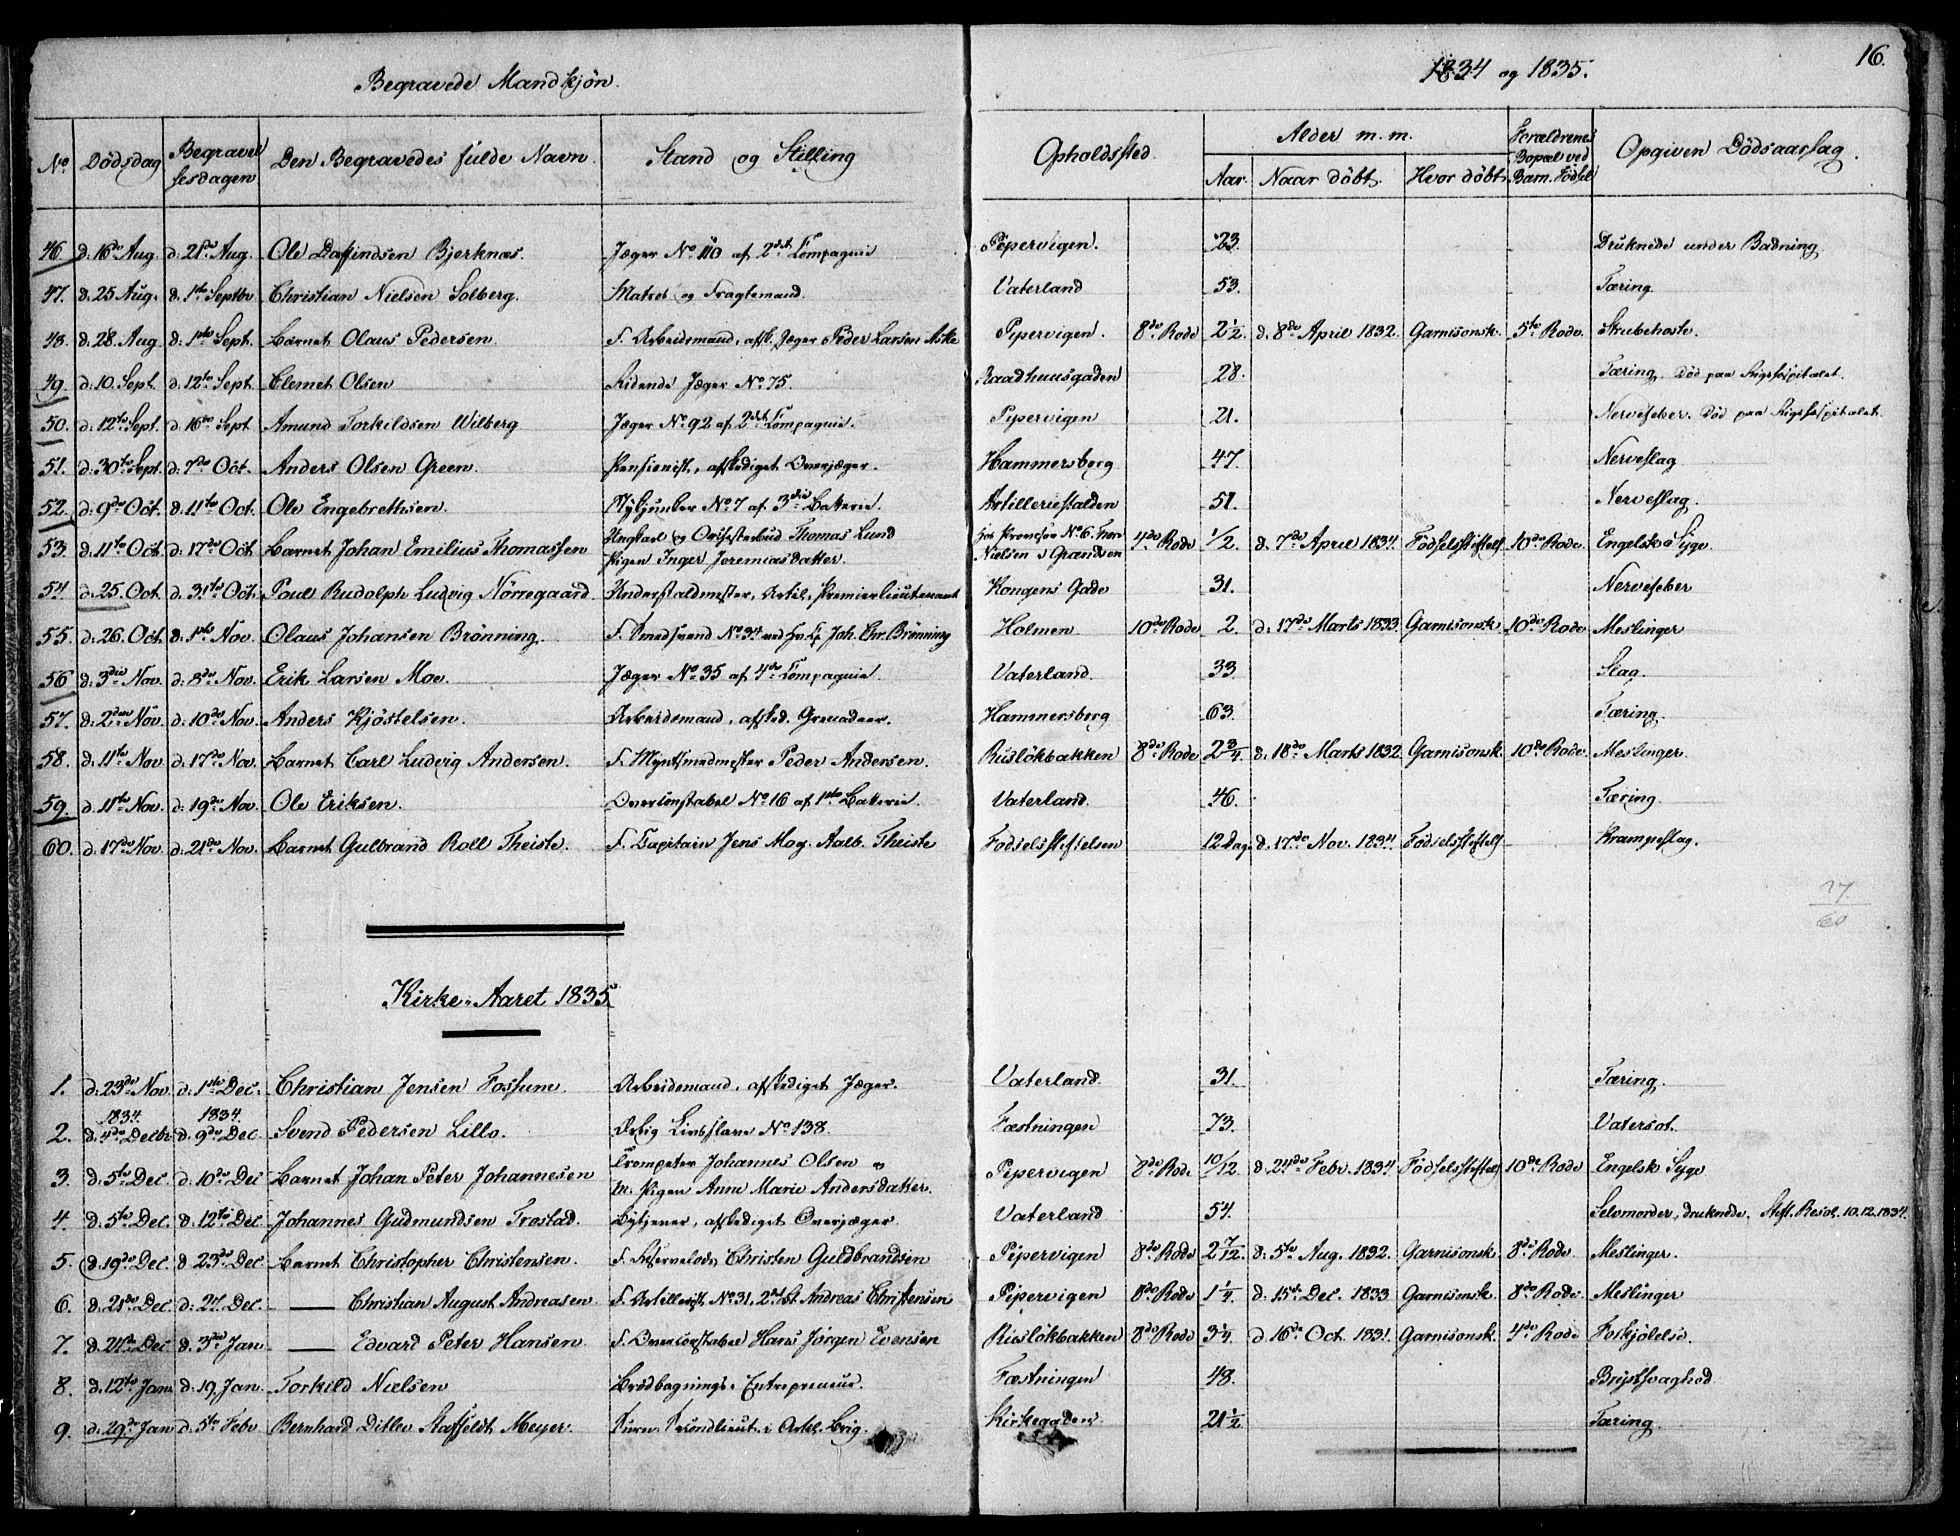 Begravede Mandkjøn.
1834 og 1835.
16.
No Dödsdag Begravelsesdagen Den Begravedes fulde Navn. Stand og Stilling Opholdssted. Alder m. m. Aar. Naar döbt. Hvor döbt. Forældrenes Bopæl ved Barn. Födsel Opgiven Dödsaarsag.
46. d. 16de Aug. d. 21de Aug. Ole Daffindsen Bjerknæs. Jæger No 110 af 2det Compagnie Pipervigen. 23. Druknede under Badning.
47. d. 25 Aug. d. 1ste Septbr Christian Nielsen Solberg. Matros og Fragtemand. Vaterland 53. Tæring.
48. d. 28. Aug. d. 1ste Sept. Barnet Olaus Pedersen. F. Arbeidsmand, afsk. Jæger Peder Larsen Aske Pipervigen. 8de Rode 2 1/2. d. 8de April 1832. Garnisonsk. 5te Rode. Strubehoste.
49. d. 10. Sept. d. 12te Sept. Clemet Olsen Ridende Jæger No 75. Raadhuusgaden 28. Tæring. Död paa Rigshospitalet.
50. d. 12te Sept. d. 16de Sept. Amund Torkildsen Wilberg Jæger No 92 af 2det Compagnie. Pipervigen 21. Nervefeber. Död paa Rigshospitalet.
51. d. 30te Sept. d. 7de Oct. Anders Olsen Green. Pensionist, afskediget Overjæger. Hammersborg 47. Nerveslag
52. d. 9de Oct. d. 11te Oct. Ole Engebrethsen. Stykjunker No 7 af 3die Batterie. Artilleriestalden 51. Nerveslag.
53. d. 11te Oct. d. 17de Oct. Barnet Johan Emilius Thomassen Ungkarl og Thomas Lund Pigen Inger Jeremiasdatter. hos No 6. Nielsen i Grændsen 4de Rode 1/2. d. 7de April 1834. Födselsstiftels 10de Rode. Engelsk Syge.
54. d. 25. Oct. d. 31te Oct. Poul Rudolph Ludvig Nörregaard. Understaldmester, Artil. Premierlieutenant Kongens Gade 31. Nervefeber
55. d. 26. Oct. d. 1ste Nov. Olaus Johansen Brönning. F. Smedsvend No 34 Joh. Chr. Brönning Holmen. 10de Rode 2. d. 17de Marts 1833. Garnisonsk. 10de Rode Meslinger
56. d. 3die Nov. d. 8de Nov. Erik Larsen Moe. Jæger No 35 af 4de Compagnie. Vaterland. 33 Slag.
57. d. 2den Nov. d. 10de Nov. Anders Kjöstelsen. Arbeidsmand, afsked. Grenadeer. Hammersborg 63. Tæring.
58. d. 11te Nov. d. 17de Nov. Barnet Carl Ludvig Andersen. F. Myntsmedmester Peder Andersen. Ruslökbakken 8de Rode 2 3/4. d. 18de Marts 1832. Garnisonsk. 10de Rode. Meslinger.
59. d. 11te Nov. d. 19de Nov. Ole Eriksen. Overconstabel No 16 af 1ste Batterie. Vaterland. 46. Tæring.
60. d. 17de Nov. d. 21de Nov. Barnet Gulbrand Roll Theiste. F. Capitain Jens Mog. Aalb. Theiste Fodselsstiftelsen 12 Dag. d. 17de Nov. 1834. Födselsstiftels Krampeslag.
27.
60
Kirke-Aaret 1835.
1. d. 23de Nov. 1834. d. 1ste Dec. 1834. Christian Jensen Fossum. Arbeidsmand, afskediget Jæger. Vaterland. 31. Tæring.
2. d. 4de Decbr d. 9de Dec. Svend Pedersen Lillo. Livsslave No 138. Fæstningen 73. Vatersot.
3. d. 5te Dec. d. 10de Dec Barnet Johan Peter Johannesen Trompeter Johannes Olsen og m. Pigen Anne Marie Andersdatter. Pipervigen 8de Rode 10/12. d. 24de Febr. 1834. Födselsstiftels 10de Rode Engelsk Syge
4. d. 5te Dec. d. 12te Dec Johannes Gudmundsen Trostad. Bytjener, afskediget Overjæger. Vaterland 54. Selvmorder, druknede. Stift. Resol. 10.12.1834.
5. d. 19de Dec. d 23de Dec Barnet Christopher Christensen. F. Christen Guldbrandsen Pipervigen 8de Rode 2 7/12. d. 5te Aug. 1832. Garnisonsk. 8de Rode. Meslinger.
6. d. 21de Dec d. 27. Dec. — Christian August Andreasen. F. Artillerist, No 31, Andreas Christensen Pipervigen 8de Rode 1 1/4. d. 15de Dec. 1833 Garnisonsk. 8de Rode. Meslinger
7. d. 24de Dec d. 3die Jan. — Edvard Peter Hansen. F. Overconstabel Hans Jörgen Evensen Ruslökbakken 8de Rode 3 1/4. d. 16de Oct. 1831. Garnisonsk. 4de Rode Forkjölelse.
8. d. 12te Jan. d. 19, Jan. Torkild Nielsen Brödbagnings-Entrepreneur. Fæstningen 48. Brystsvaghed.
9. d. 29de Jan d. 5te Febr Bernhard Ditlev Staffeldt Meyer. Secondlieut. i Artil. Brig. Kirkegaden 21 1/2. Tæring.